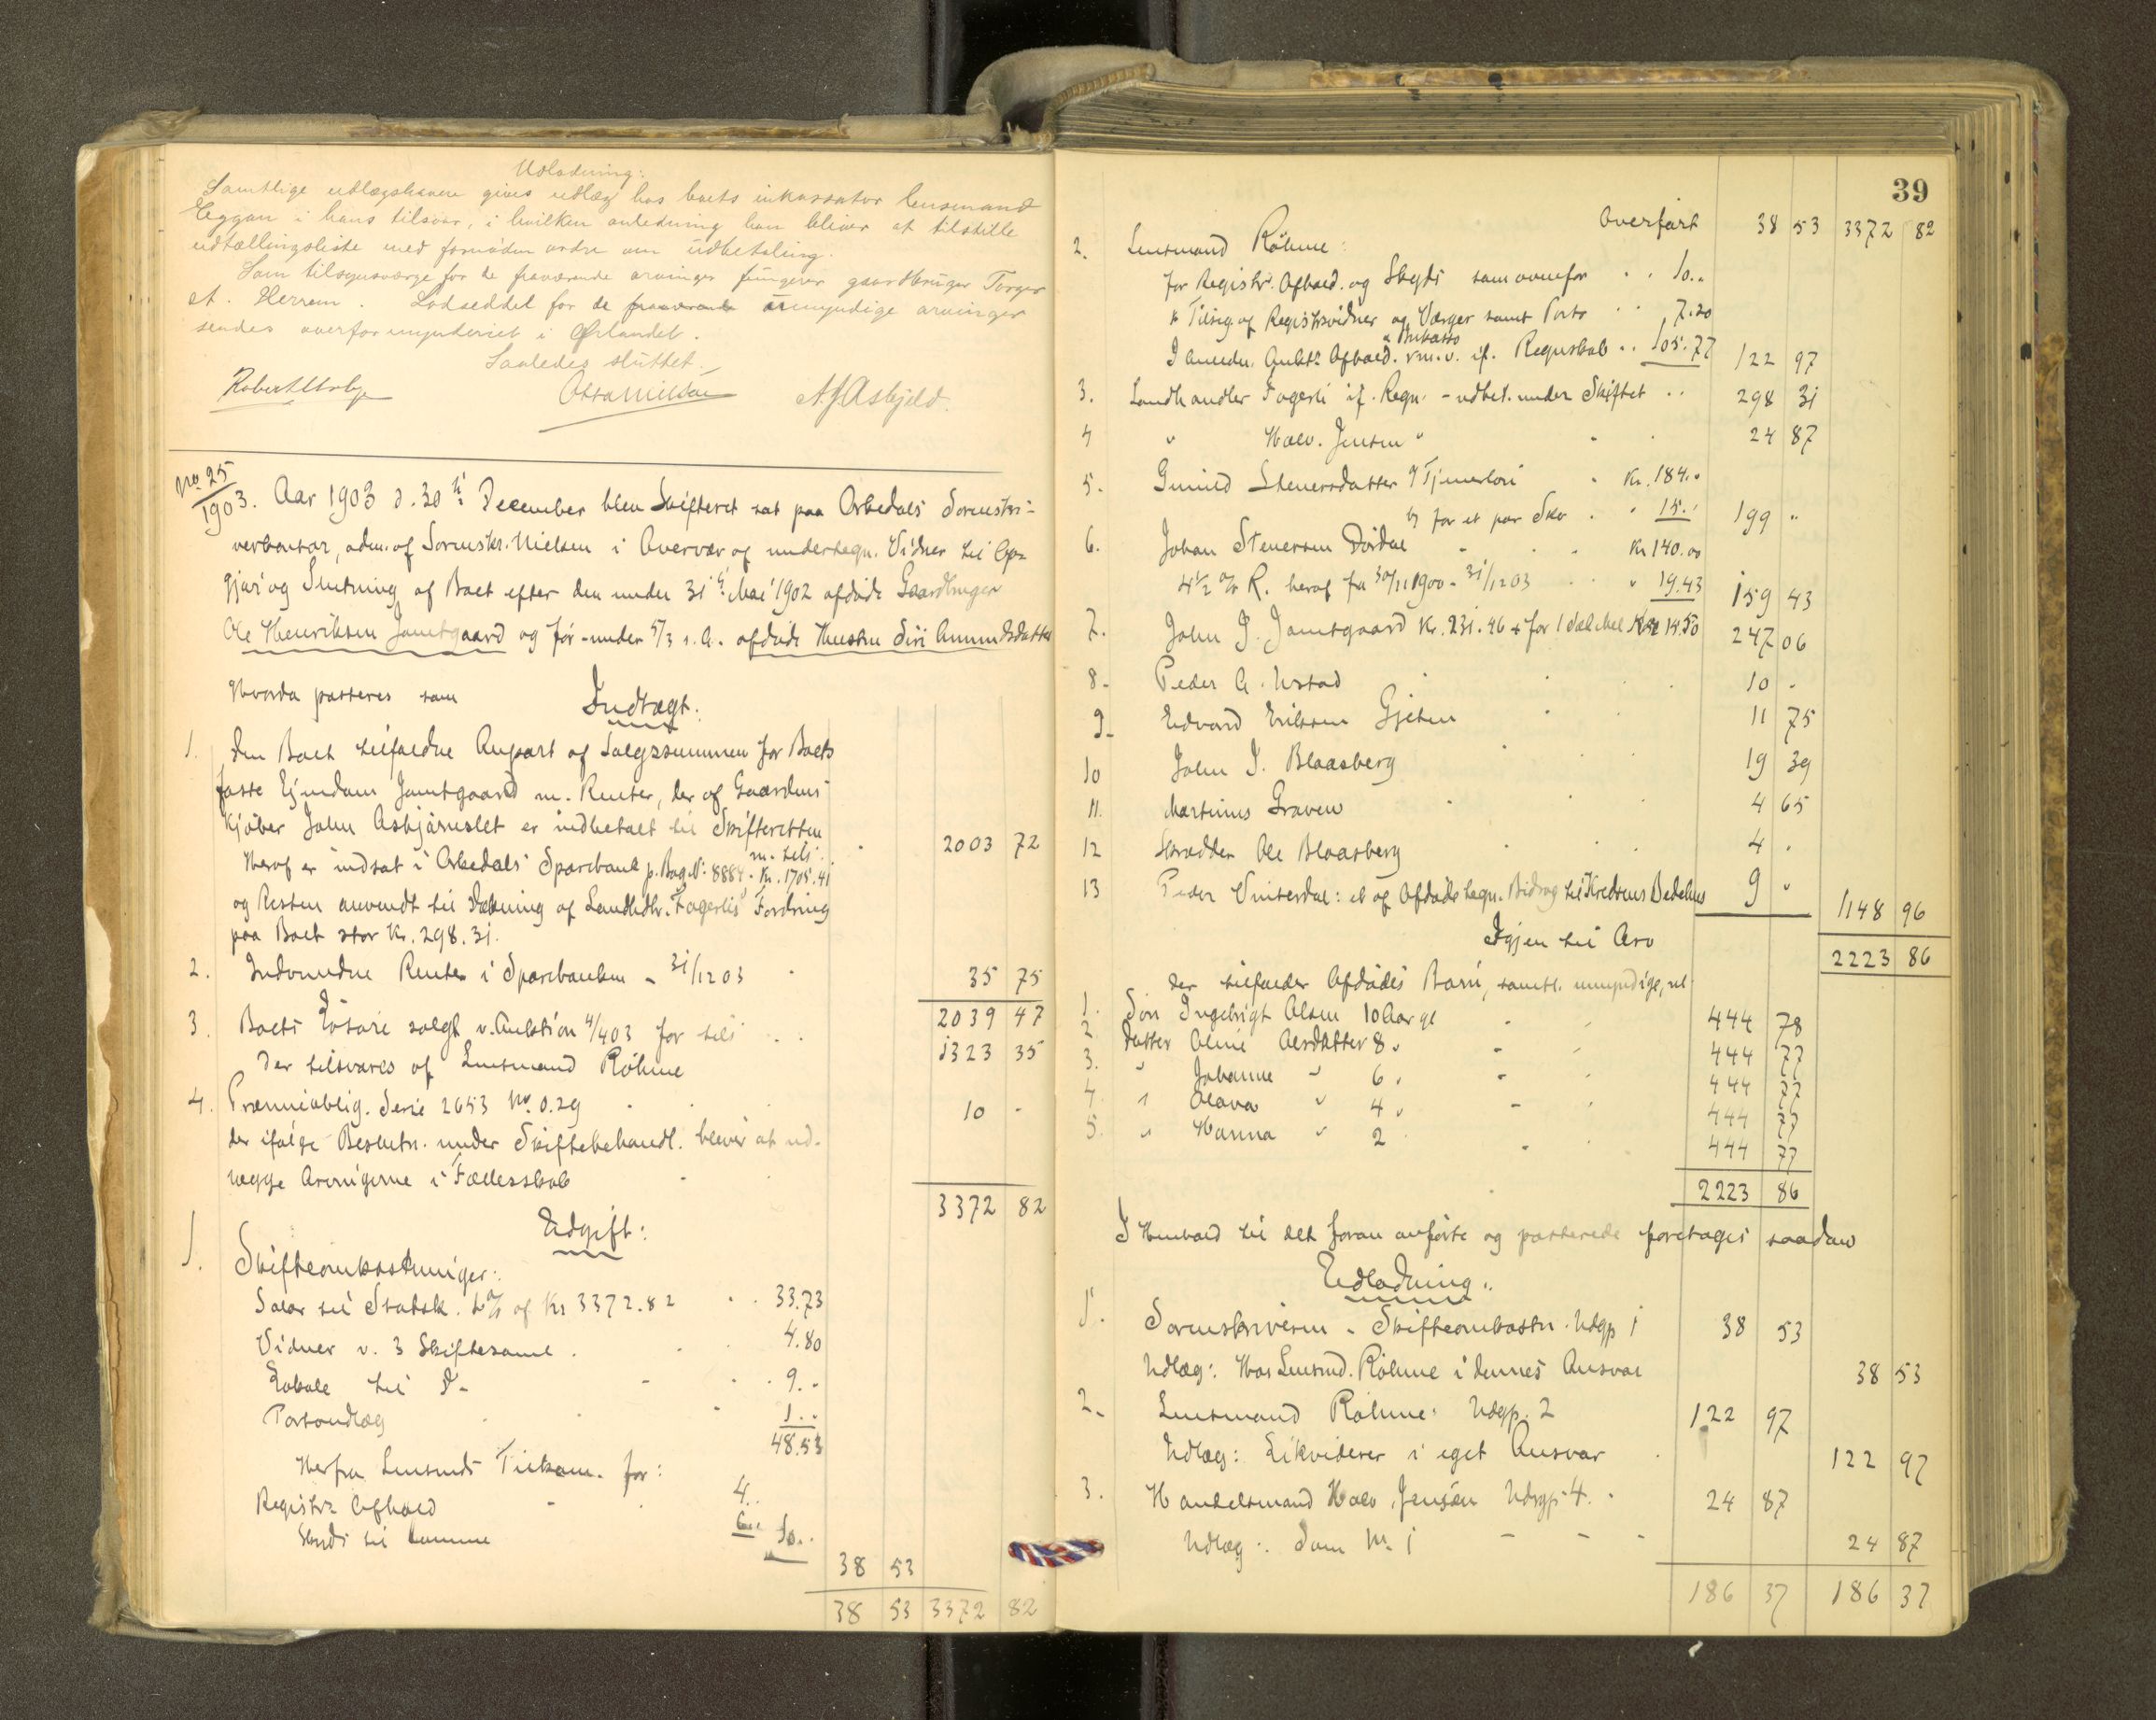 Udlodning:
Samtlige udlægshavere gives udlæg hos boets inkassator lensmand
Eggan i hans tilsvar, i hvilken anledning han bliver at tilstille
udtællingsliste med fornöden ordre om udbetaling.
Som tilsynsværge for de fraværende arvinger fungerer gaardbruger Torger
et. Herrem. Lodseddel for de fraværende umyndige arvinger
sendes overformynderiet i Ørlandet.
Saaledes sluttet.
N. J. Asbjeld.
No 25
1903. Aar 1903 d. 30 te December blev Skifteret sat paa Orkedals Sorenskri-
verkontor, adm. af Sorenskr. Nielsen i Overvær af undertegn. Vidner til Op-
gjør og Slutning af Boet efter den under 31 te Mai 1902 afdøde Gaardbruger
Ole Henriksen Jamtgaard og før - under 5/3 s. A. afdøde Hustru Siri Amundsdatter
Hvorda passeres som
Indtægt:
1. Den Boet tilfaldne Anpart af Salgssummen for Boets
faste Ejendom Jamtgaard m. Renter, der af Gaardens
Kjøber John Asbjørnslet er indbetalt til Skifteretten 2003 72
Heraf er indsat i Orkedals Sparebank p. Bog N: 8884 m. tils. Kr. 1705.41
og Resten anvendt til Dækning af Landhdlr. Fagerlis Fordring
paa Boet stor Kr. 298.31.
2. Indvundne Renter i Sparebanken - 31/12 03 35 75
2039 47
3. Boets Løsøre solgt v. Auktion 4/4 03 for tils. 1323 35
der tilsvares af Lensmand Røhme
4. Præmieoblig. Serie 2653 No. 0.29 10 -
der ifølge Beslutn. under Skiftebehandl. bliver at ud-
lægge Arvingerne i Fællesskab
3372 82
Udgift:
1. Skifteomkostninger:
Salær til Statsk. 1 % af Kr 3372.82 33.73
Vidner v. 3 Skiftesaml. 4.80
Lokale til D- 9.-
Portoudlæg 1..
48.53
Herfra Lensmds Tilkom. for:
Registr. Ophold 4..
Skyds til Samme 6.. 10..
38 53
38 53 3372 82
39
Overført 38 53 3372 82
2. Lensmand Röhme:
for Registr. Ophold. og Skyds som ovenfor 10..
" Tilsig. af Registrvidner og Værger samt Porto 7.20
I Anledn. Aukt. Ophold. & Inkasso m. v. if. Regnskab 105.77 122 97
3. Landhandler Fagerli if. Regn. - udbet. under Skiftet 298 31
4 " Halv. Jensen " 24 87
5. Gunild Steversdatter a) Tjenerløn Kr. 184..
b) for et par Sko 15.. 199 "
6. Johan Steversen Dørdal Kr 140.00
4 1/2 % R. heraf fra 30/11 1900 - 31/12 03 " 19.43 159 43
7. John J. Jamtgaard Kr. 231.46 + for 1 Sæk Mel Kr 14.50 247 06
8. Peder A. Ustad 10 -
9. Edvard Eriksen Gjeten 11 75
10 John J. Blaasberg 19 39
11. Martinus Graven 4 65
12 Skrædder Ole Blaasberg 4 -
13 Peder Vinterdal: et af Afdøde tegn. Bidrag til Kredsens Bedehus 9 " 1148 96
Igjen til Arv 2223 86
der tilfalder Afdødes Børn, samtl. umyndige,
1. Søn Ingebrigt Olsen 10 Aar gl 444 78
2 Datter Oline Olesdatter 8 " 444 77
3. " Johanne " 6 " 444 77
4. " Olava " 4 " 444 77
5. " Hanna " 2 444 77
2223 86
I Henhold til det foran anførte og passerede foretages saadan
Udlodning:
1. Sorenskriveren - Skifteomkostn. Udgp 1 38 53
Udlæg: Hos Lensmd. Röhme i dennes Ansvar 38 53
2. Lensmand Röhme: Udgp. 2 122 97
Udlæg: Likviderer i eget Ansvar 122 97
3. Handelsmand Halv. Jensen Udgp 4. 24 87
Udlæg: Som No 1 24 87
186 37 186 37